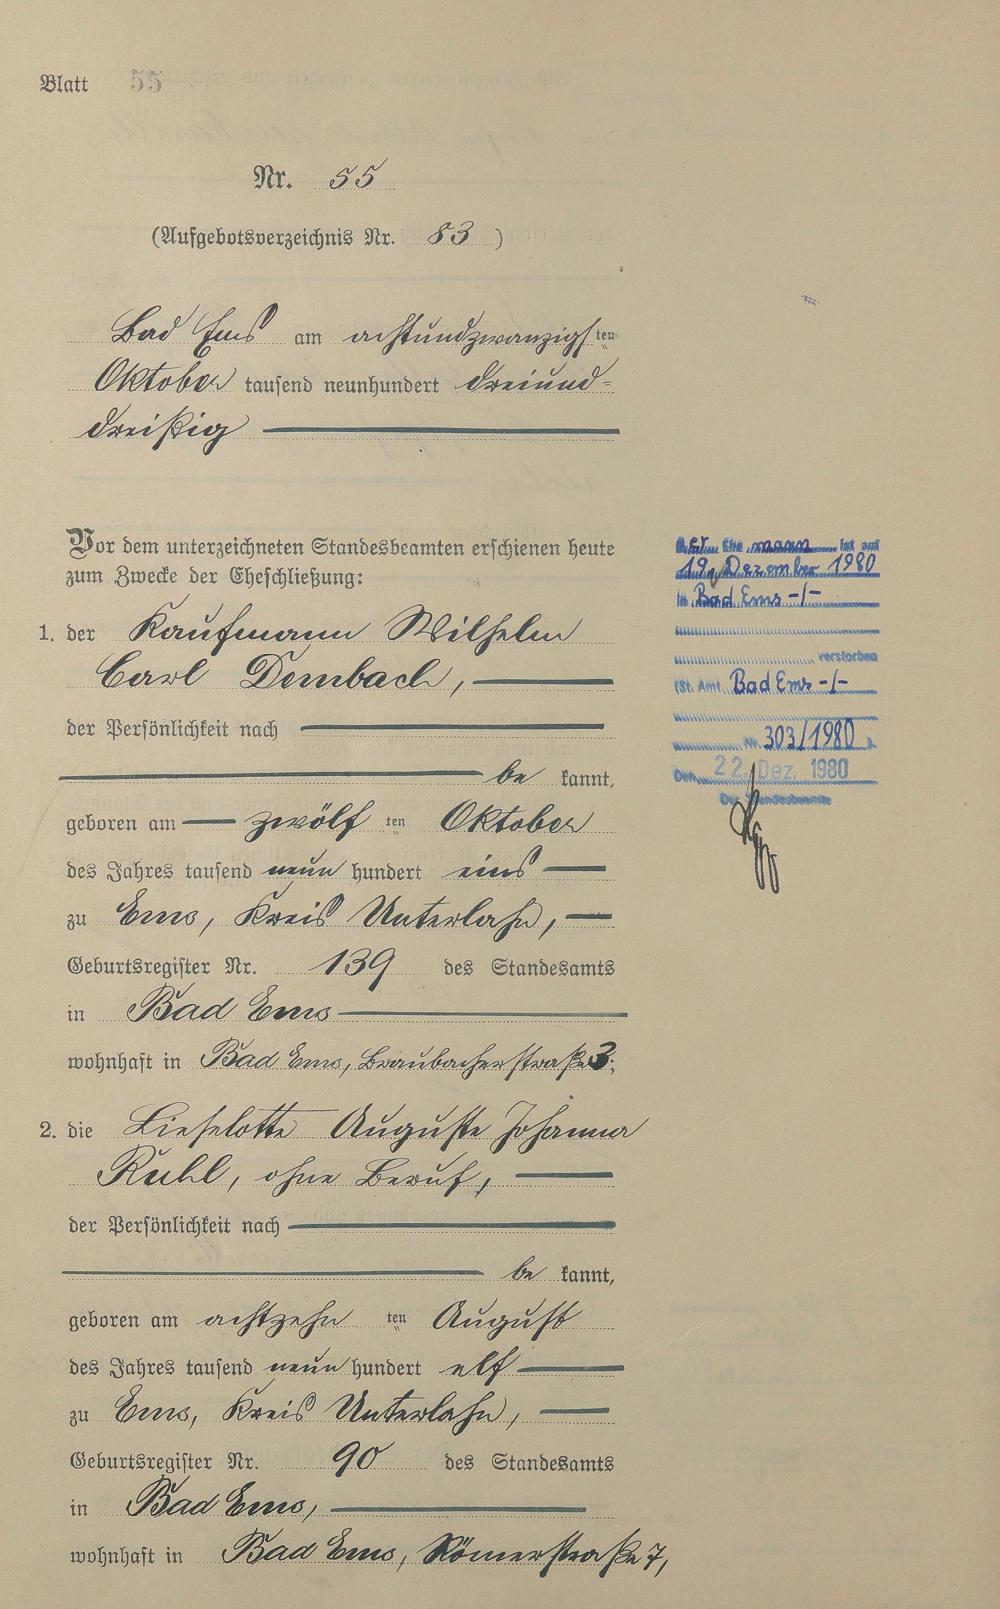 Blatt 55
Nr. 55
(Aufgebotsverzeichnis Nr. 83)
Bad Ems am achtundzwanzigsten
Oktober tausend neunhundert dreiund-
dreißig
Vor dem unterzeichneten Standesbeamten erschienen heute
zum Zwecke der Eheschließung:
1. der Kaufmann Wilhelm
Carl Dembach,
der Persönlichkeit nach
be kannt,
geboren am zwölf ten Oktober
des Jahres tausend neun hundert eins
zu Ems, Kreis Unterlahn,
Geburtsregister Nr. 139 des Standesamts
in Bad Ems
wohnhaft in Bad Ems, Braubacherstraße 3;
2. die Lieselotte Auguste Johanna
Ruhl, ohne Beruf,
der Persönlichkeit nach
be kannt,
geboren am achtzehn ten August
des Jahres tausend neun hundert elf
zu Ems, Kreis Unterlahn,
Geburtsregister Nr. 90 des Standesamts
in Bad Ems,
wohnhaft in Bad Ems, Römerstraße 7,
Der Ehemann ist am
19. Dezember 1980
in Bad Ems -/-
verstorben
(St. Amt Bad Ems -/-
Nr. 303/1980 )
Den 22. Dez. 1980
Der Standesbeamte